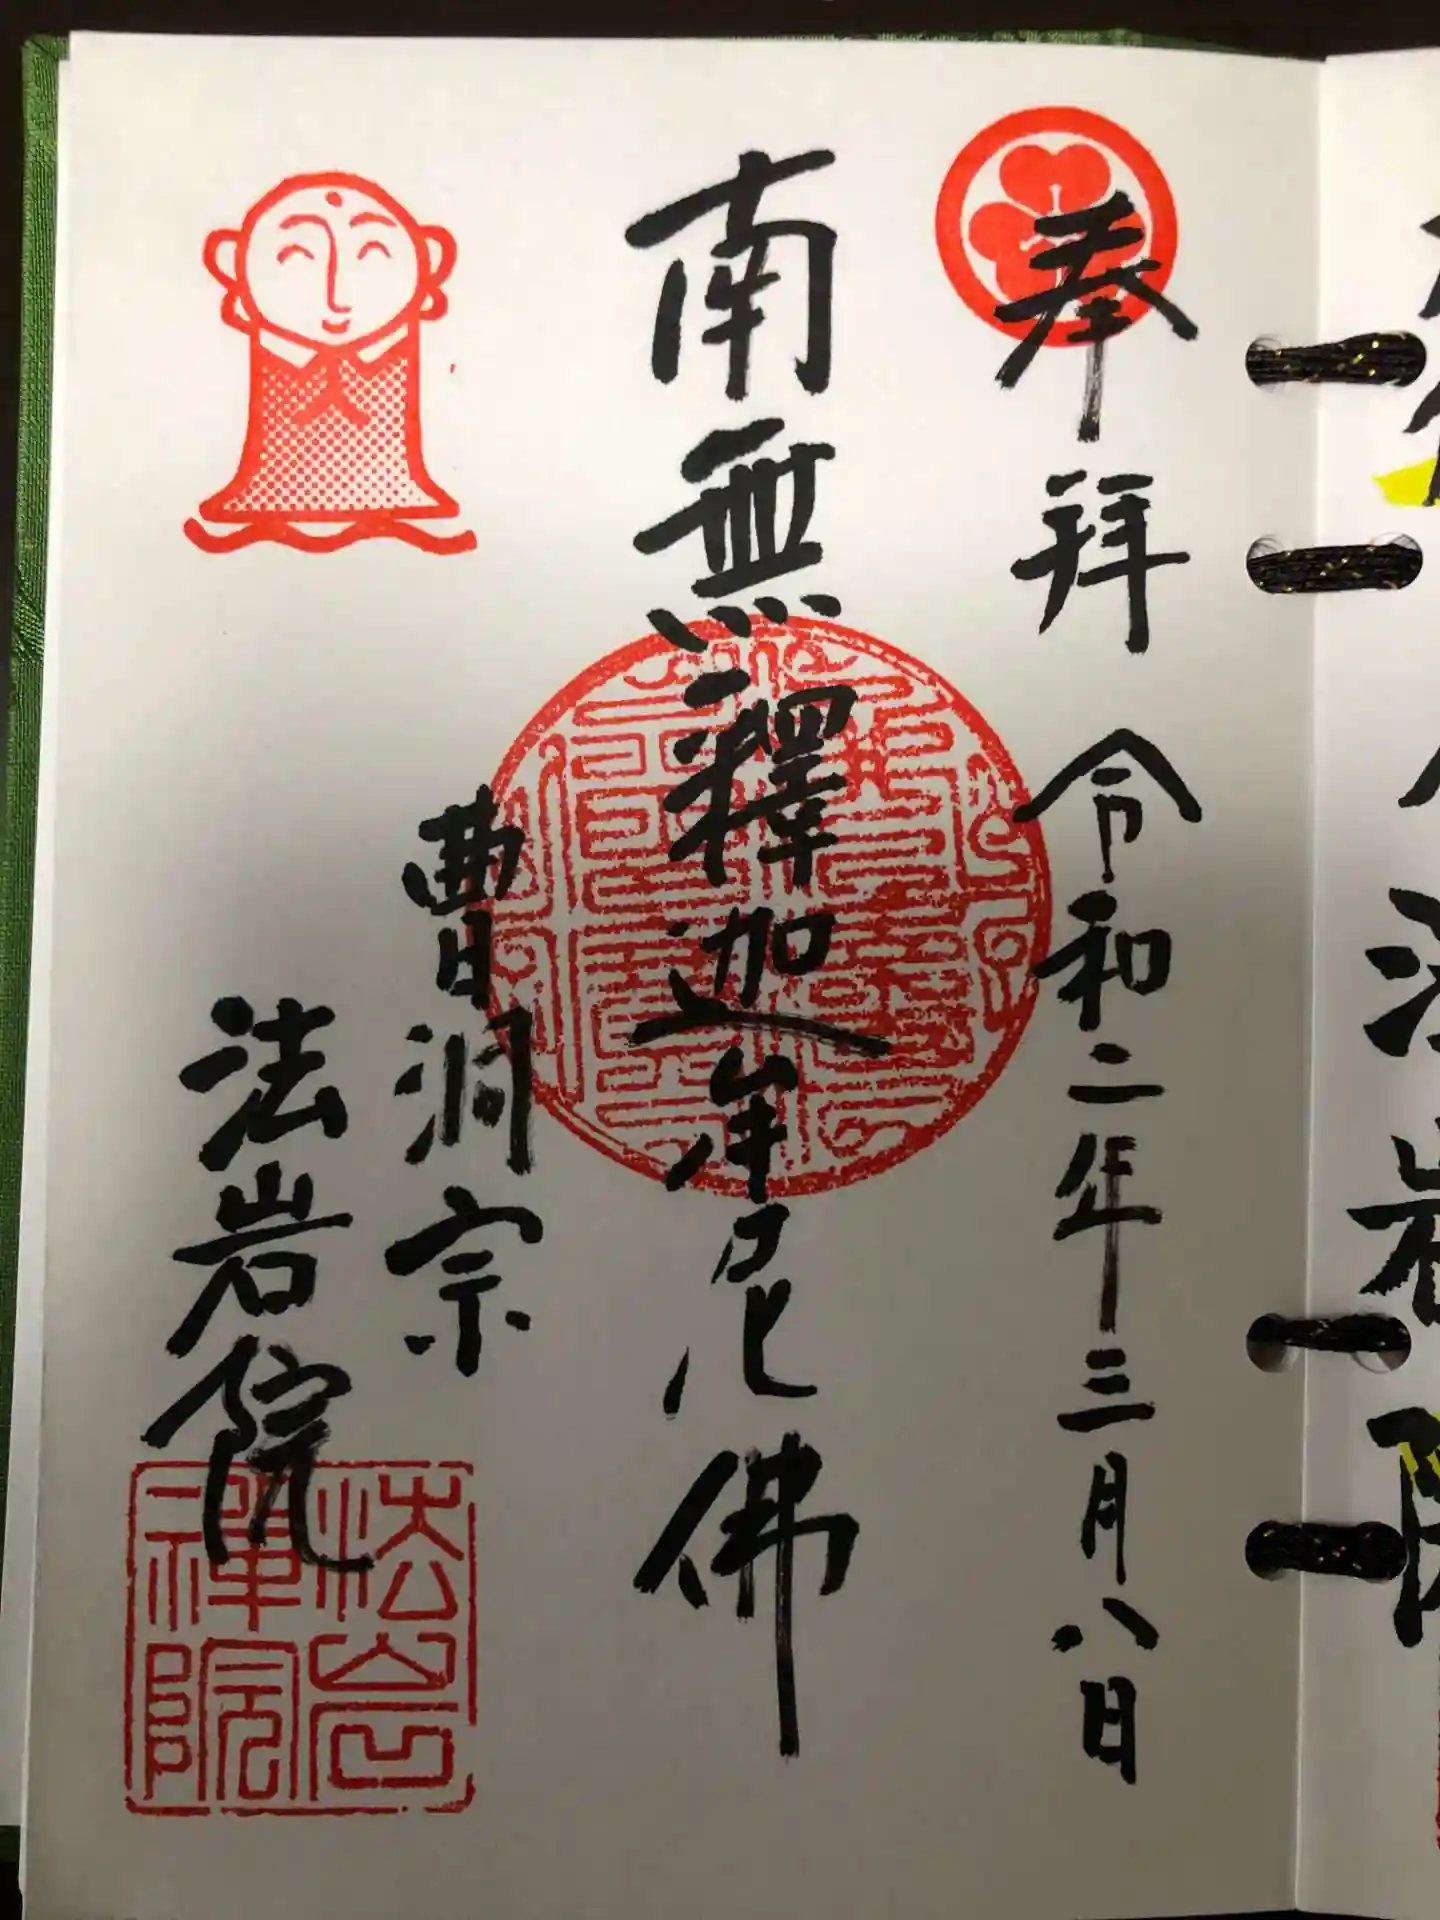 奉拝 令和二年三月八日
南無釋迦牟尼佛
曹洞宗
法岩院
法岩禅院